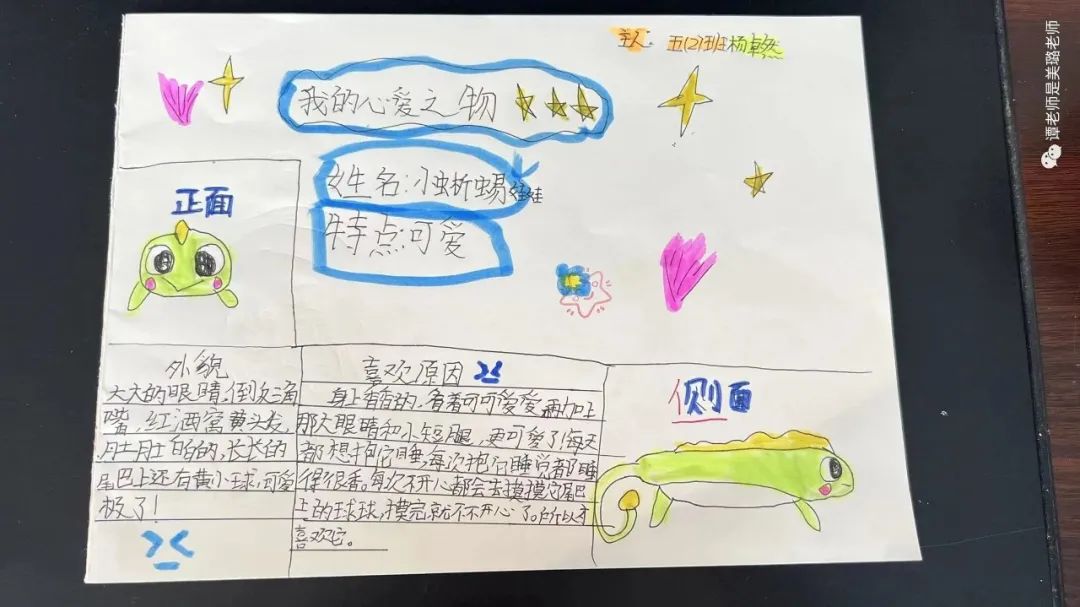 主人: 五(2)班杨卓然
我的心爱之物
姓名:小蜥蜴娃娃
特点:可爱
正面
外貌
大大的眼睛,倒三角
嘴,红酒窝黄头发,
肚肚白白的,长长的
尾巴上还有黄小球,可爱
极了!
喜欢原因
身上香香的,看着可可爱爱,再加上
那大眼睛和小短腿,更可爱了!每天
都想抱它睡,每次抱它睡觉都睡
得很香。每次不开心都会去摸摸它尾巴
上的球球,摸完就不不开心了。所以才
喜欢它。
侧面
谭老师是美璐老师